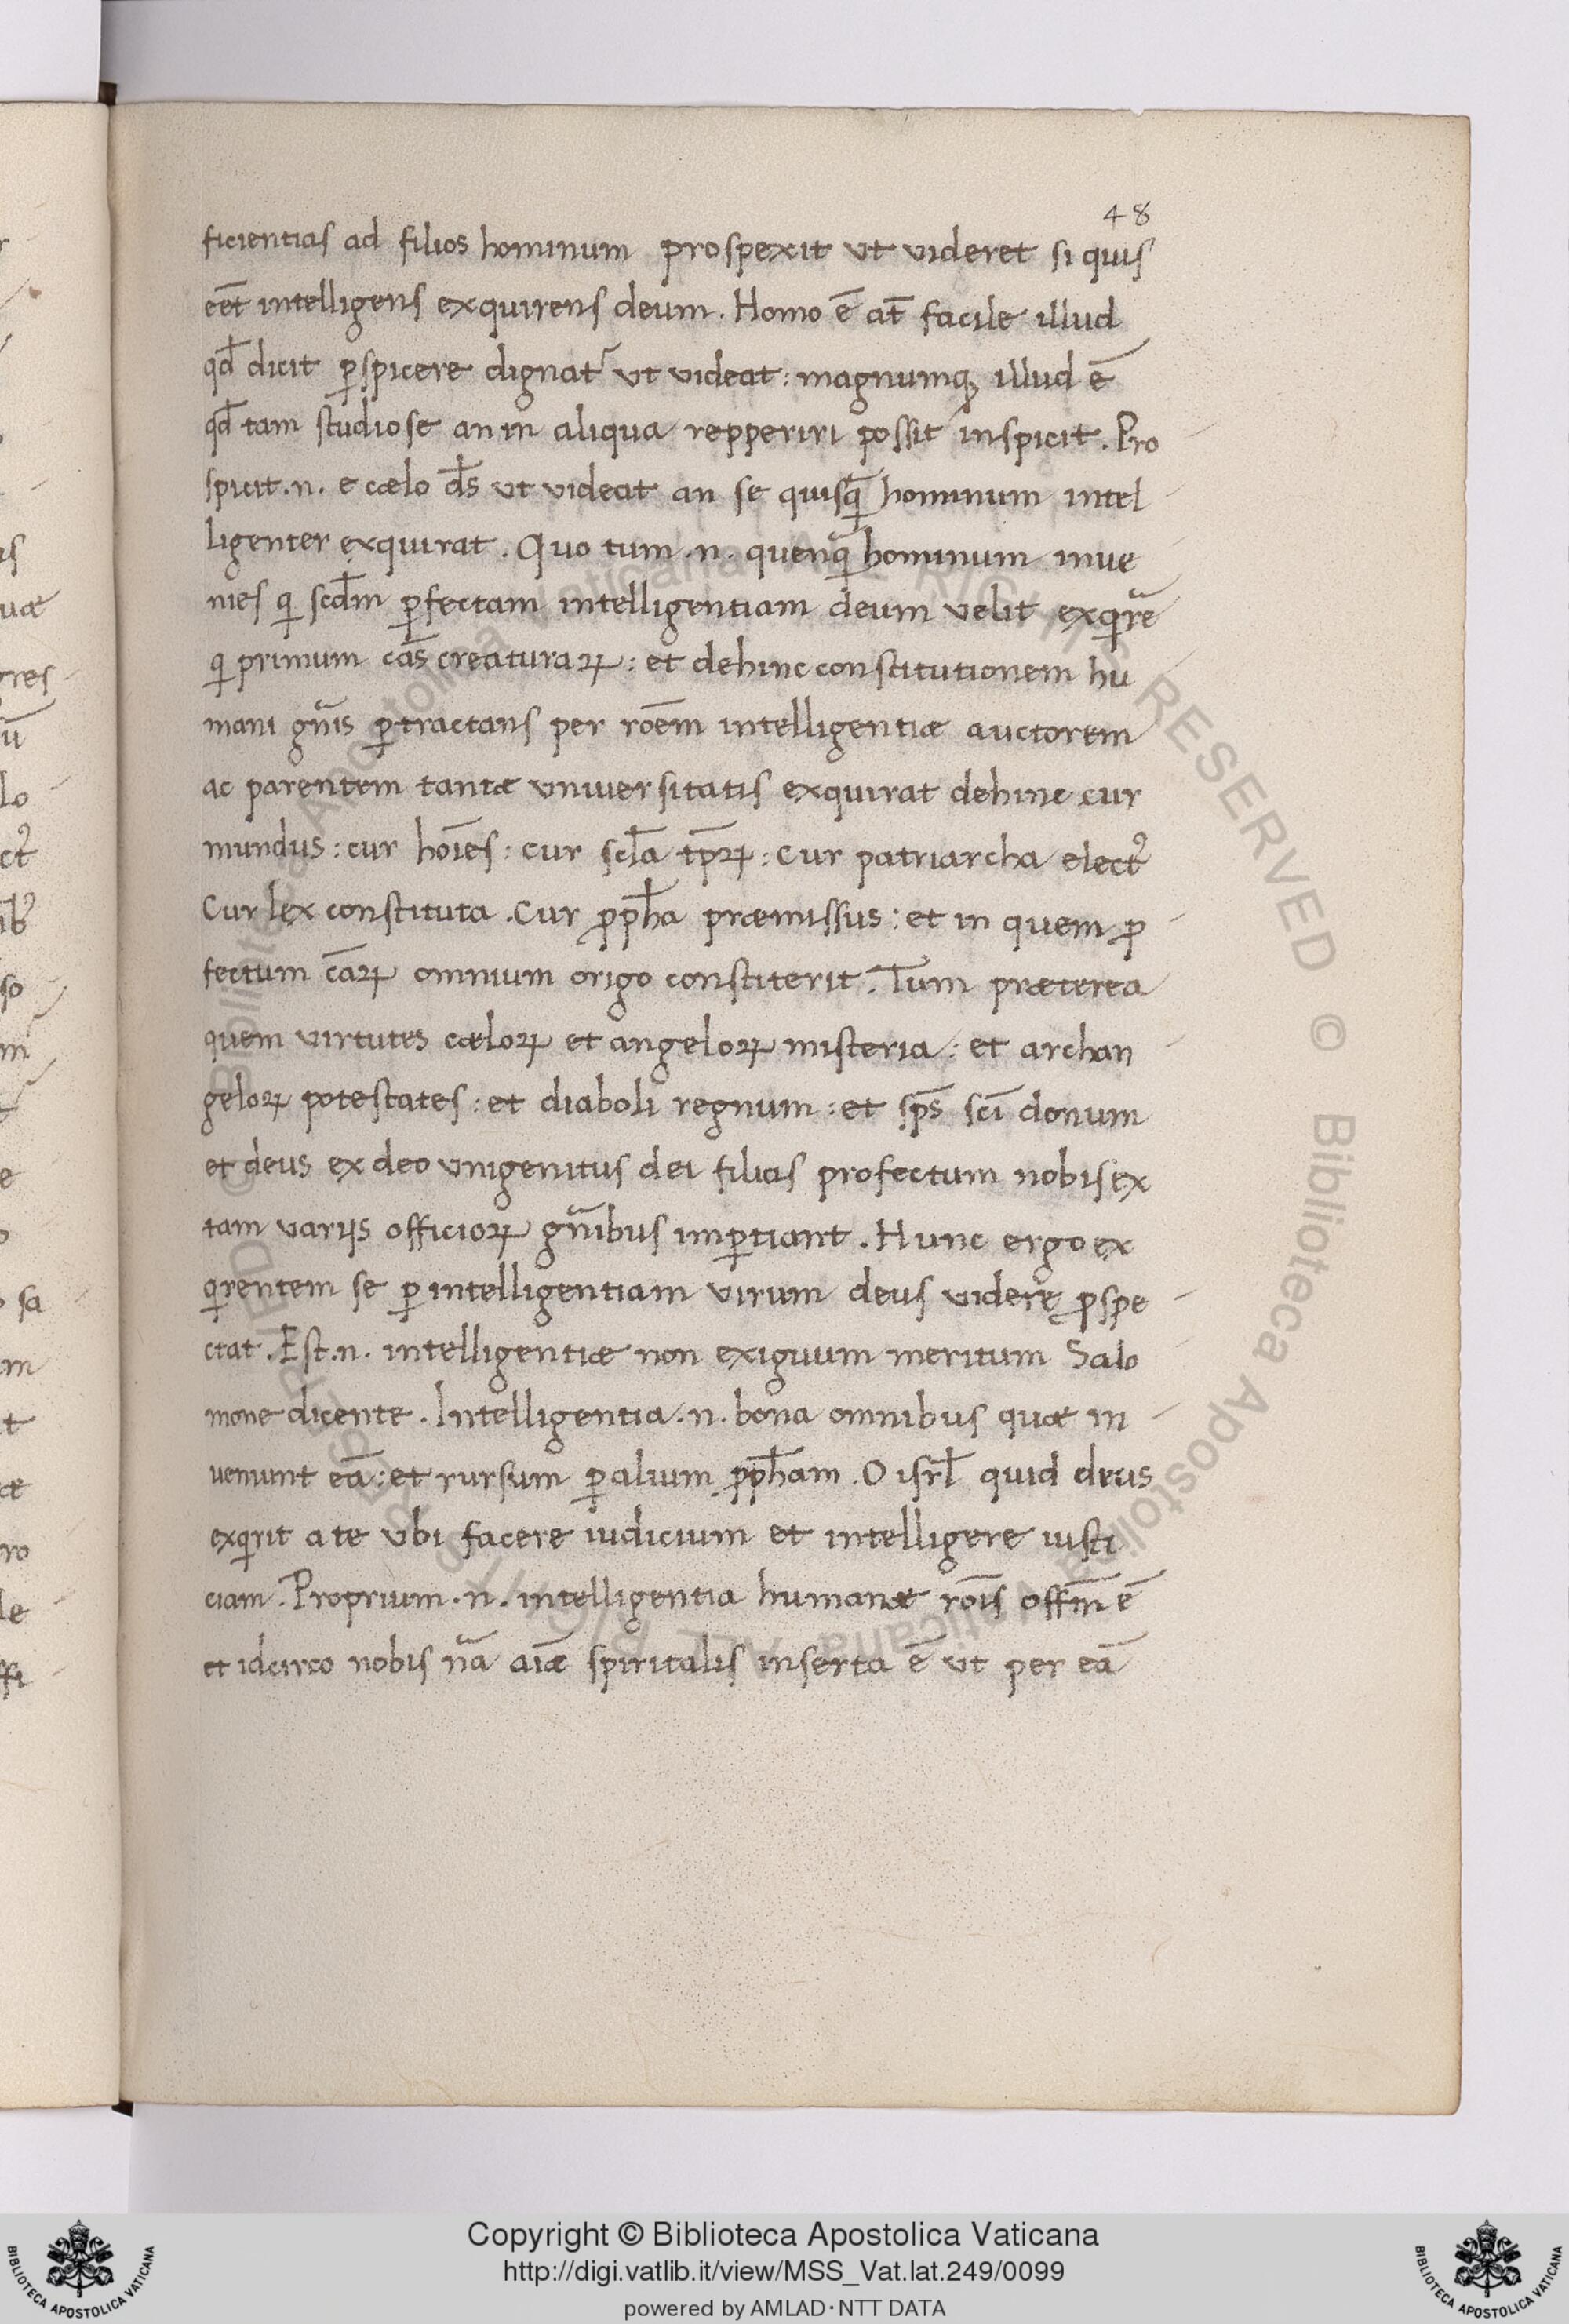 48
ficientias ad filios hominum prospexit ut videret si quis
eēt intelligens exquirens deum. Homo ē at̄ facile illud
qd̄ dicit ꝑspicere dignat᷑ ut videat: magnumqꝫ illud ē
qd̄ tam studiose an in aliqua repperiri possit inspicit. Pro
spicit .n. e cælo d̄s ut videat an se quisꝗ̄ hominum intel
ligenter exquirat. Quo tum .n. quenꝗ̄ hominum inve
nies q scd̄m ꝑfectam intelligentiam deum velit exqr̄e
q primum cās creaturaꝝ: et dehinc constitutionem hu
mani gn̄is ꝑtractans per rōem intelligentiæ auctorem
ac parentem tantæ universitatis exquirat dehinc cur
mundus: cur hoīes: cur scl̄a tp̄ꝝ: cur patriarcha elect᷒
Cur lex constituta. Cur ꝓph̄a præmissus: et in quem ꝓ
fectum cāꝝ omnium origo constiterit. Tum præterea
quem virtutes cæloꝝ et angeloꝝ misteria: et archan
geloꝝ potestates: et diaboli regnum: et sp̄s scī donum
et deus ex deo unigenitus dei filius profectum nobis ex
tam varijs officioꝝ gn̄ibus imꝑtiant. Hunc ergo ex
qrentem se ꝑ intelligentiam virum deus videre ꝓspe
ctat. Est .n. intelligentiæ non exiguum meritum Salo
mone dicente. Intelligentia .n. bona omnibus quæ in
veniunt eā: et rursum ꝑ alium ꝓph̄am. O isrl̄ quid deus
exqrit a te ubi facere iudicium et intelligere iusti
ciam. Proprium .n. intelligentia humanæ rōis offm̄ ē
et idcirco nobis nā aīæ spiritalis inserta ē ut per eā
Copyright © Biblioteca Apostolica Vaticana
http://digi.vatlib.it/view/MSS_Vat.lat.249/0099
powered by AMLAD·NTT DATA
BIBLIOTECA APOSTOLICA VATICANA
BIBLIOTECA APOSTOLICA VATICANA
© Biblioteca Apostolica Vaticana ALL RIGHTS RESERVED © Biblioteca Apostolica Vaticana ALL RIGHTS RESERVED